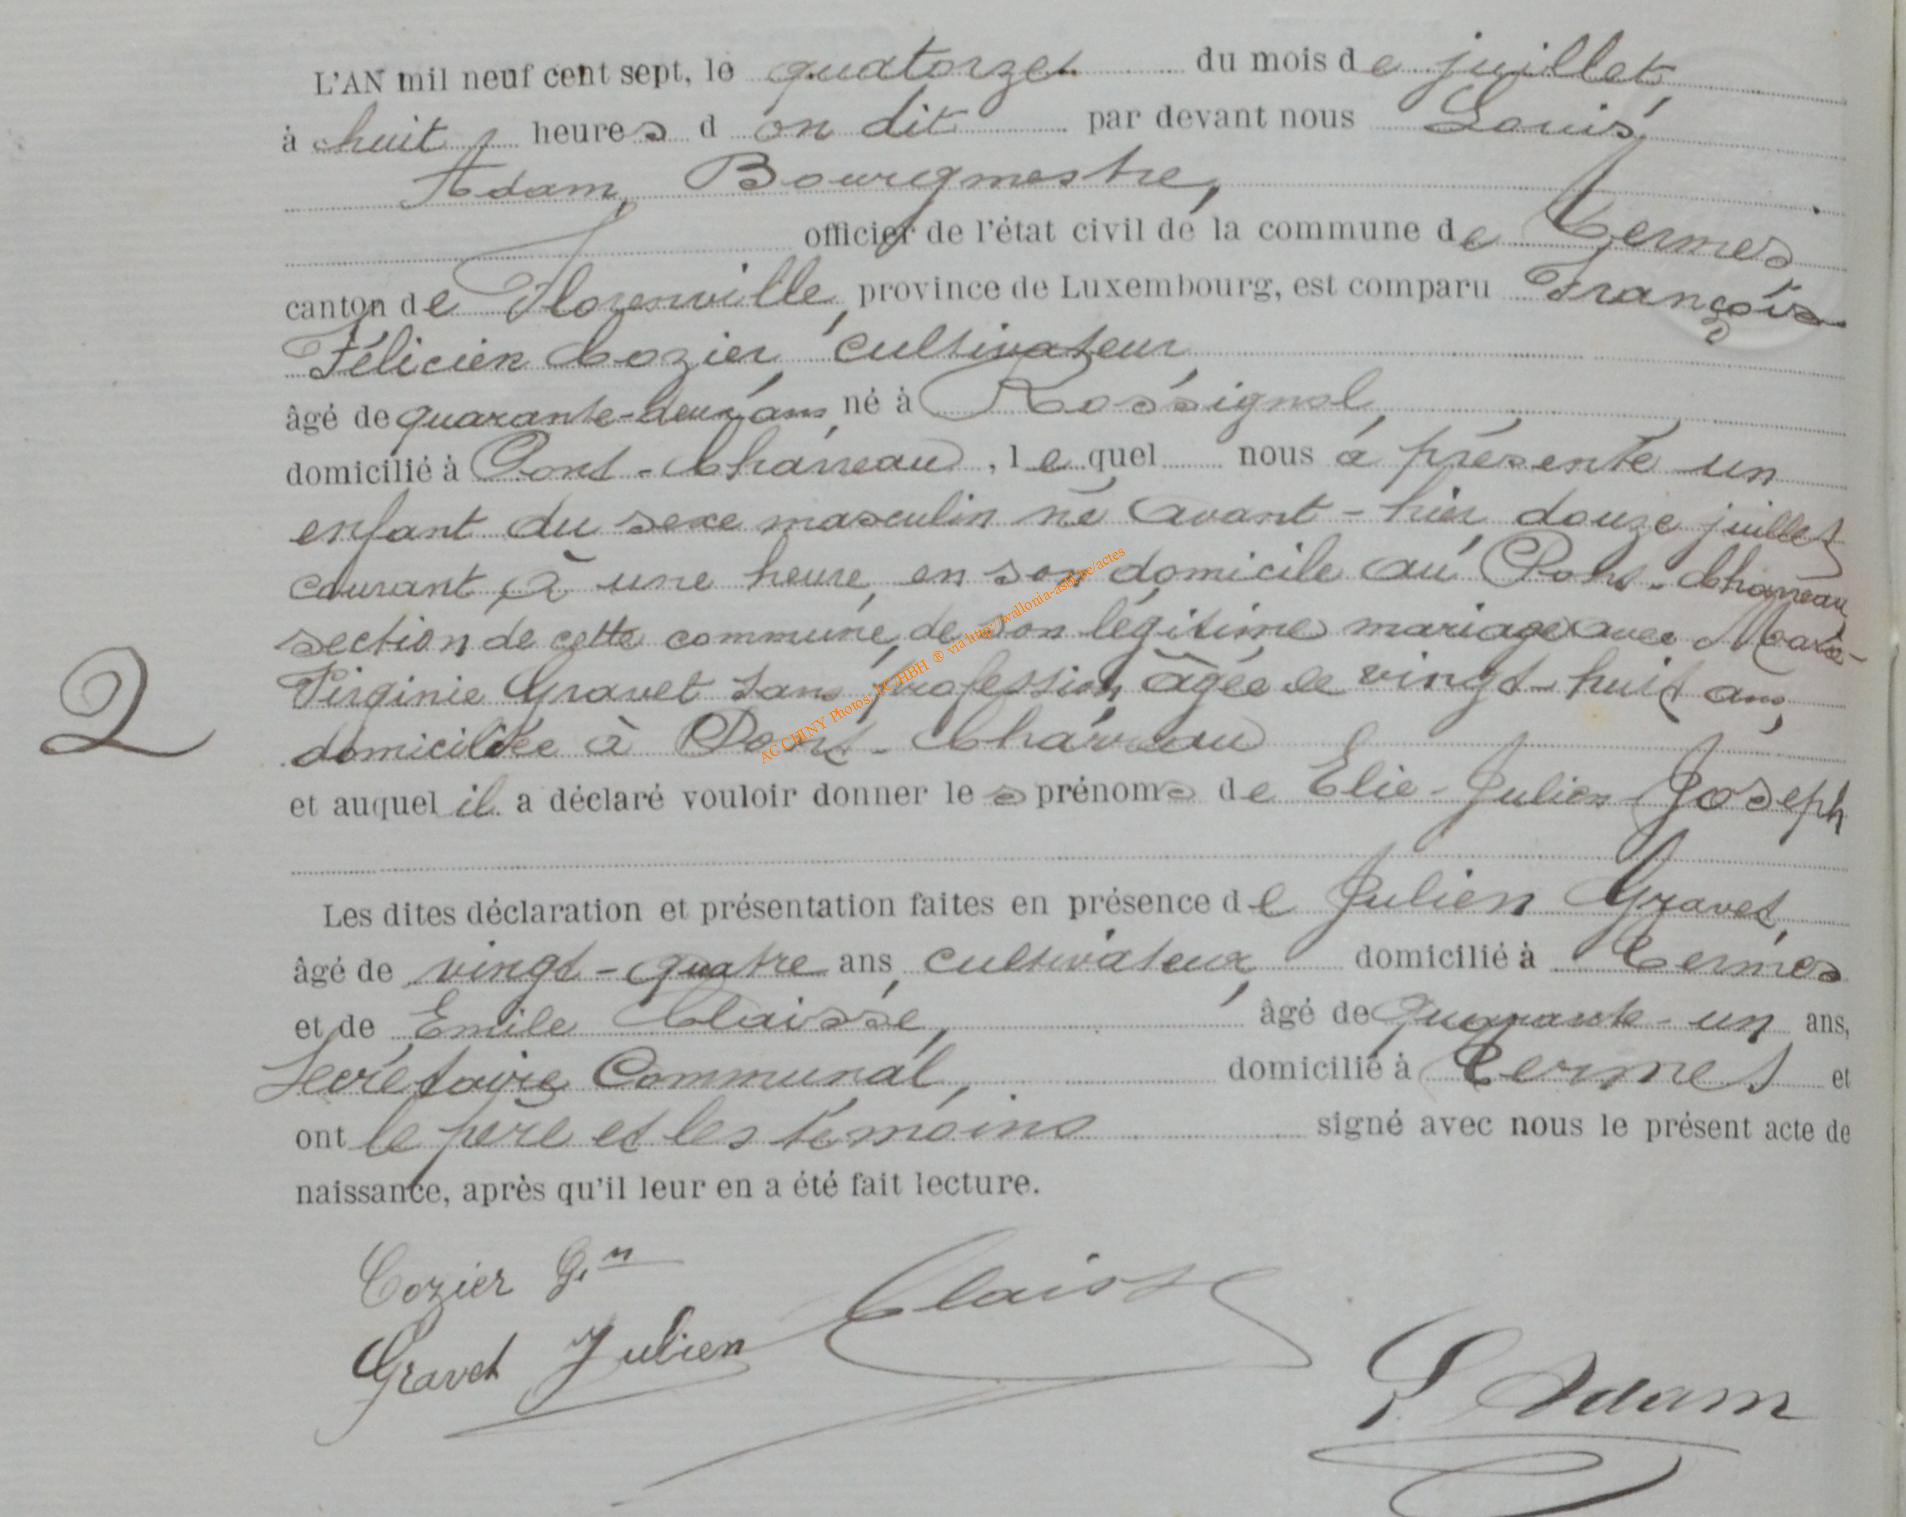 L'AN mil neuf cent sept, le quatorze du mois de juillet,
à huit heures d on dit par devant nous Louis
Adam, Bourgmestre,
officier de l'état civil de la commune de Termes
canton de Florenville, province de Luxembourg, est comparu François
Félicien Cozier, cultivateur
âgé de quarante-deux ans, né à Rossignol,
domicilié à Pont-Charreau, lequel nous a présenté un
enfant du sexe masculin né avant-hier douze juillet
courant, à une heure, en son domicile au Pont-Charreau,
section de cette commune, de son légitime mariage avec Marie-
Virginie Gravet sans profession, âgée de vingt-huit ans,
domiciliée à Pont-Charreau
2
et auquel il a déclaré vouloir donner les prénoms de Elie-Julien-Joseph
Les dites déclaration et présentation faites en présence de Julien Gravet,
âgé de vingt-quatre ans, cultivateur, domicilié à Termes
et de Emile Claisse, âgé de quarante-un ans,
Secrétaire Communal, domicilié à Termes et
ont le père et les témoins signé avec nous le présent acte de
naissance, après qu'il leur en a été fait lecture.
Cozier
Claisse
Gravet Julien
L Adam